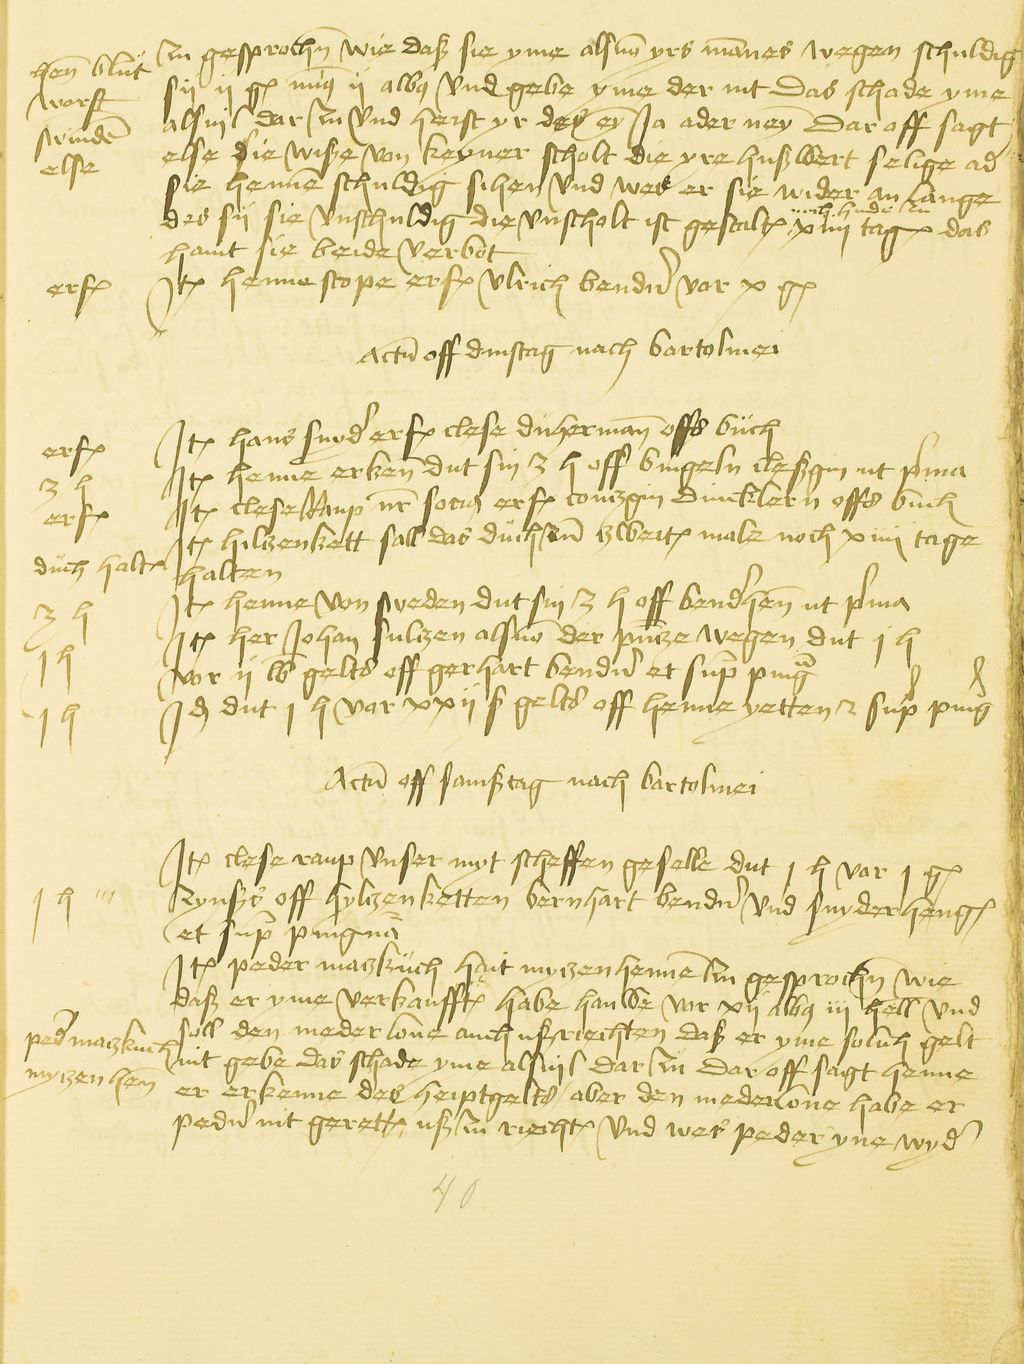 Hen blut
worst
smides
else
zu gesprochn wie daß sie yme als von yrs mannes wegen schuldig
sij ij gß mīq ij albq und gebe yme der nit Das schade yme
als vil dar zu und heist yr des eyn Ja ader neyn Dar off sagt
else sie wiße von keyner scholt die yre hußwert selige ad
sie henne schuldig sihen und wes er sie wider an lange
des sij sie unschuldig die unscholt ist gestalt xiiij tag das
haint sie beide verbot
erf
It henne stope erf Ulrich bender vor x gß
Actū off dinstag nach bartolmei
erf
It hans snyder erf clese duherman offs buch
3 h
It henne erken dut sin 3 h off bingeln cleßgin ut prima
erf
It clese raup nr socio erf contzgin duncklern offs buch
buch halt
It hiltzenkett sall das buch zum zweite male noch xiiij tage
halten
3 h
It henne von sweden dut sin 3 h off bender hen ut prima
1 h
It her Johan sultzen als von der presentze wegen dut 1 h
vor ij lb gelts off gerhart bender et supra pingnora
1 h
Id dut 1 h vor xxij ß gelts off henne yetten z supra ping
Actū off samßtag nach bartolmei
It clese raup unser myt scheffen geselle dut 1 h vor 1 gß
1 h
zynßs off hyltzenketten bernhart bender und snyder hengß
et supra pingnora
It peder matzkuch hait mytzenhenne zu gesprochn wie
daß er yme verkaufft habe hauwe vor xij albq iij hell und
peder matzkuch
mytzenhen
soll den mederlone auch ußriechten daß er yme solich gelt
nit gebe das schade yme als vil dar zu Dar off sagt henne
er erkenne des heiptgelts aber den mederlone habe er
peder nit gerett uß zu riecht und wes peder yne wyder
40